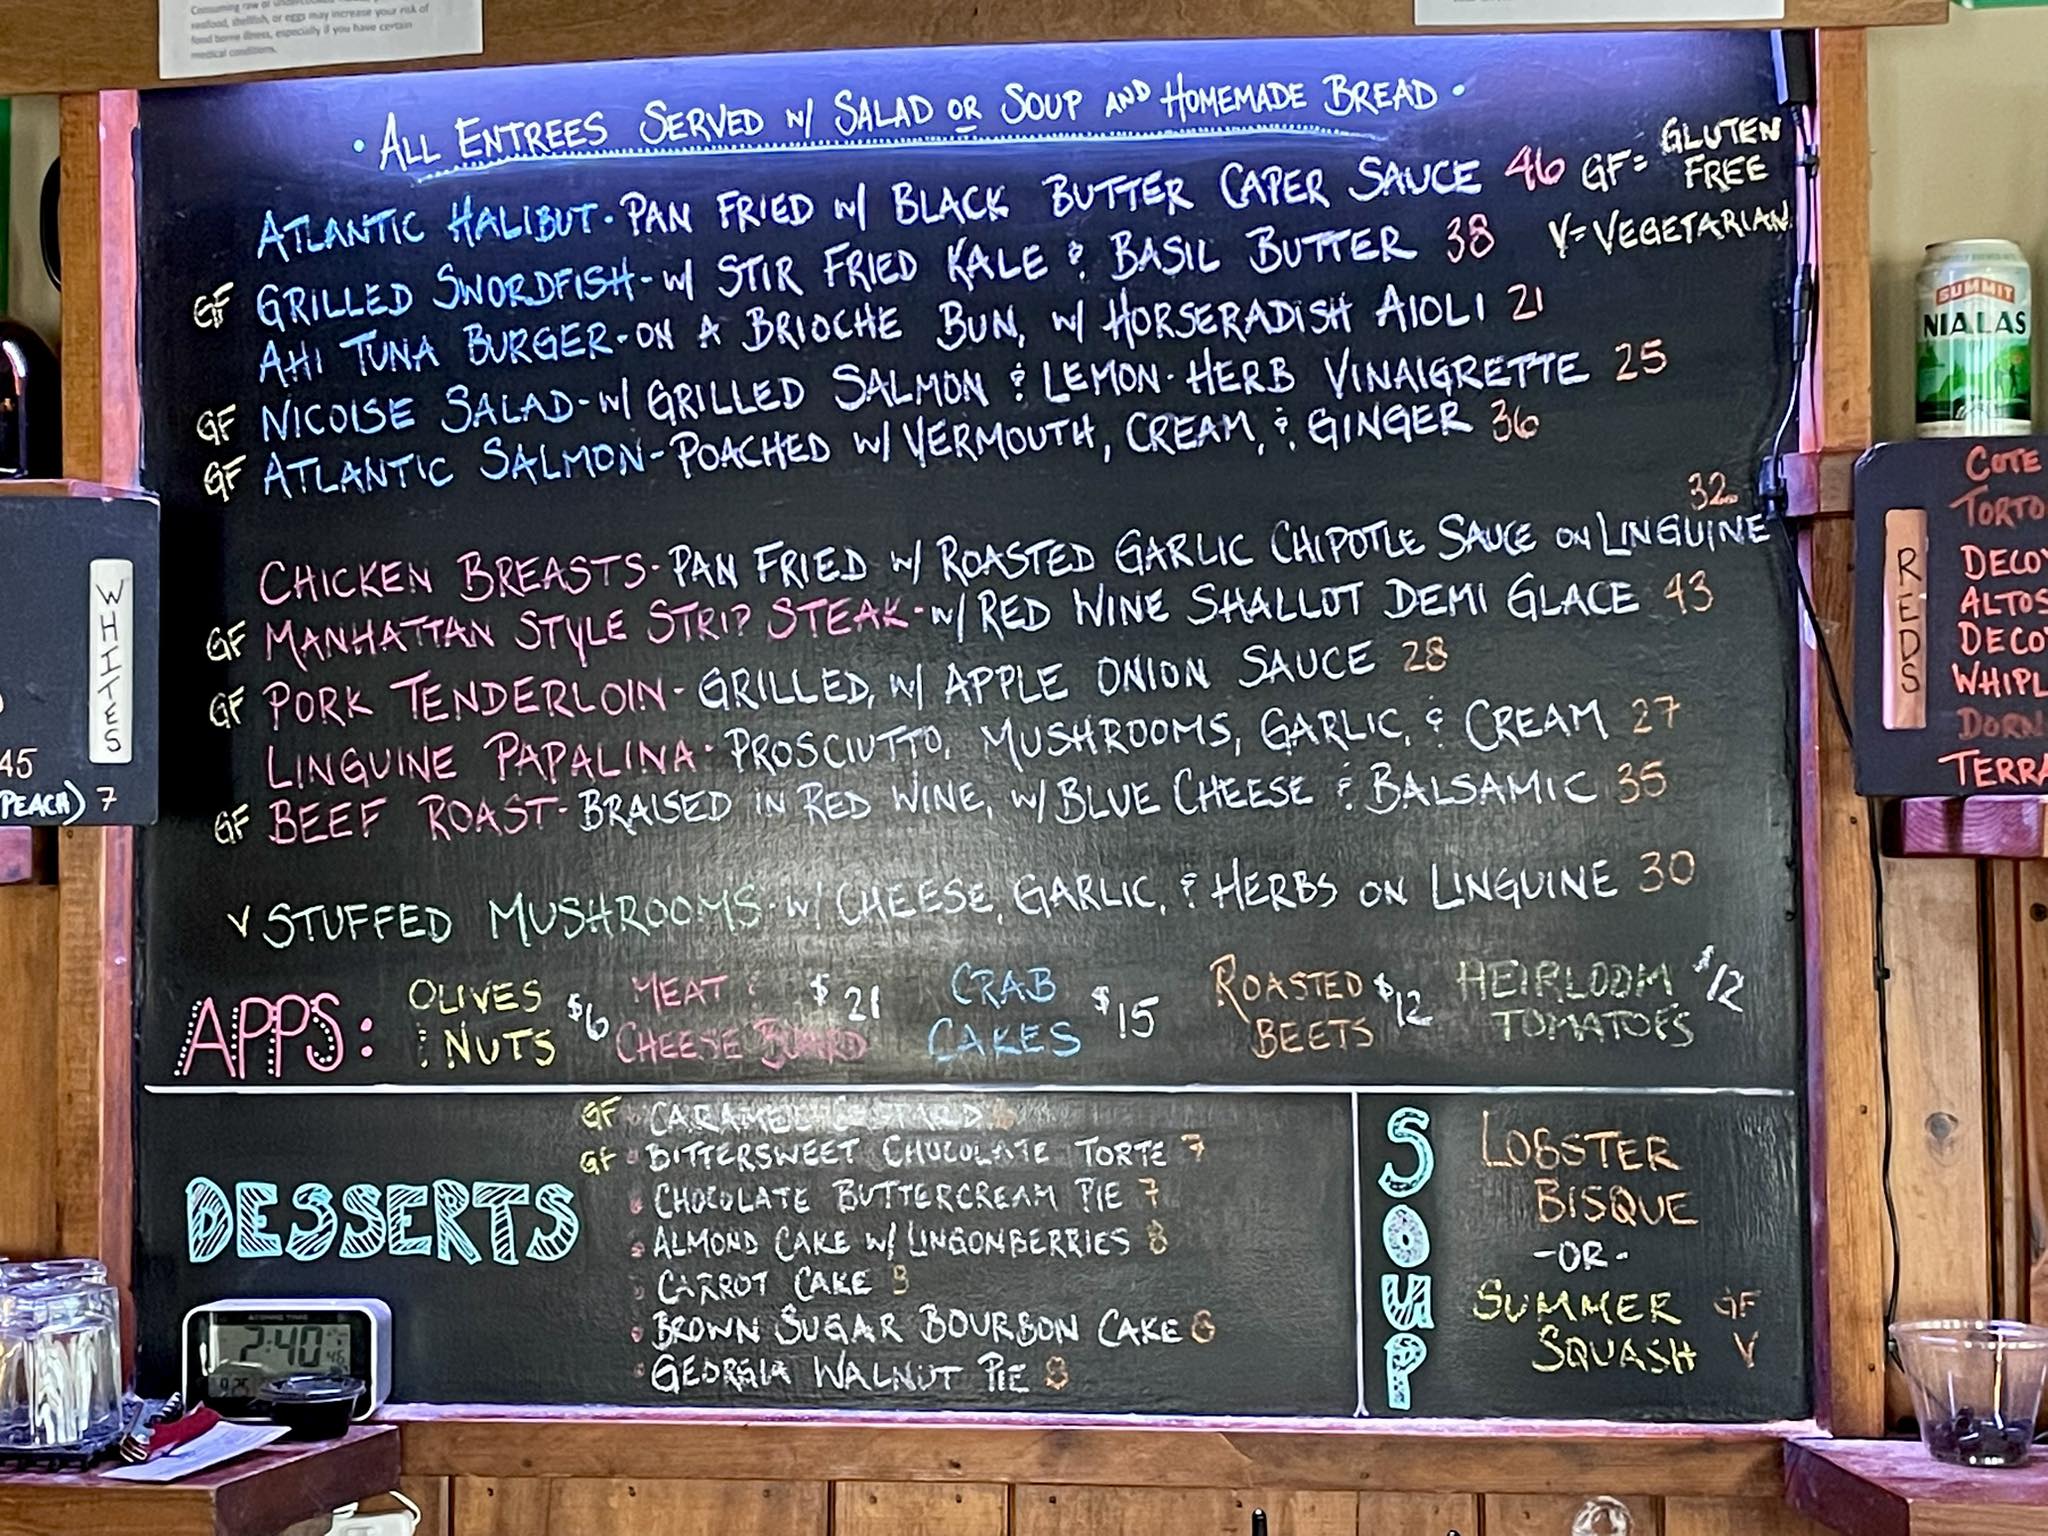 Consuming raw or undercooked
seafood, shellfish, or eggs may increase your risk of
food borne illness, especially if you have certain
medical conditions.
• ALL ENTREES SERVED W/ SALAD OR SOUP AND HOMEMADE BREAD •
GF= GLUTEN FREE
V=VEGETARIAN
ATLANTIC HALIBUT - PAN FRIED W/ BLACK BUTTER CAPER SAUCE 46
GF GRILLED SWORDFISH - W/ STIR FRIED KALE & BASIL BUTTER 38
AHI TUNA BURGER - ON A BRIOCHE BUN, W/ HORSERADISH AIOLI 21
GF NICOISE SALAD - W/ GRILLED SALMON & LEMON-HERB VINAIGRETTE 25
GF ATLANTIC SALMON - POACHED W/ VERMOUTH, CREAM, & GINGER 36
CHICKEN BREASTS - PAN FRIED W/ ROASTED GARLIC CHIPOTLE SAUCE ON LINGUINE 32
GF MANHATTAN STYLE STRIP STEAK - W/ RED WINE SHALLOT DEMI GLACE 43
GF PORK TENDERLOIN - GRILLED, W/ APPLE ONION SAUCE 28
LINGUINE PAPALINA - PROSCIUTTO, MUSHROOMS, GARLIC, & CREAM 27
GF BEEF ROAST - BRAISED IN RED WINE, W/ BLUE CHEESE & BALSAMIC 35
V STUFFED MUSHROOMS - W/ CHEESE, GARLIC, & HERBS ON LINGUINE 30
APPS:
OLIVES & NUTS $6
MEAT & CHEESE BOARD $21
CRAB CAKES $15
ROASTED BEETS $12
HEIRLOOM TOMATOES $12
DESSERTS
GF CARAMEL CUSTARD
GF BITTERSWEET CHOCOLATE TORTE 7
CHOCOLATE BUTTERCREAM PIE 7
ALMOND CAKE W/ LINGONBERRIES 8
CARROT CAKE
BROWN SUGAR BOURBON CAKE
GEORGIA WALNUT PIE 8
SOUP
LOBSTER
BISQUE
-OR-
SUMMER GF
SQUASH V
WHITES
45
PEACH) 7
SUMMIT
REDS
COTE
TORTO
DECOY
ALTOS
DECO
WHIPL
DORN
TERRA
2:40